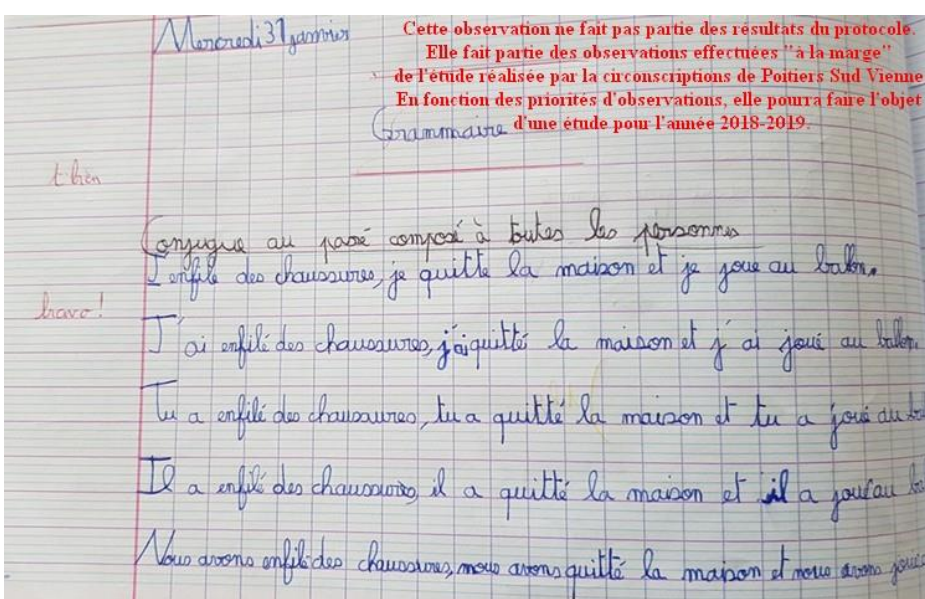 Mercredi 31 janvier
Cette observation ne fait pas partie des résultats du protocole.
Elle fait partie des observations effectuées "à la marge"
de l'étude réalisée par la circonscriptions de Poitiers Sud Vienne
En fonction des priorités d'observations, elle pourra faire l'objet
d'une étude pour l'année 2018-2019.
Grammaire
t bien
Conjugue au passé composé à toutes les personnes
J'enfile des chaussures, je quitte la maison et je joue au ballon.
bravo!
J'ai enfilé des chaussures, j'ai quitté la maison et j'ai joué au ballon.
Tu a enfilé des chaussures, tu a quitté la maison et tu a joué au
Il a enfilé des chaussures, il a quitté la maison et il a joué au
Nous avons enfilé des chaussures, nous avons quitté la maison et nous avons joué